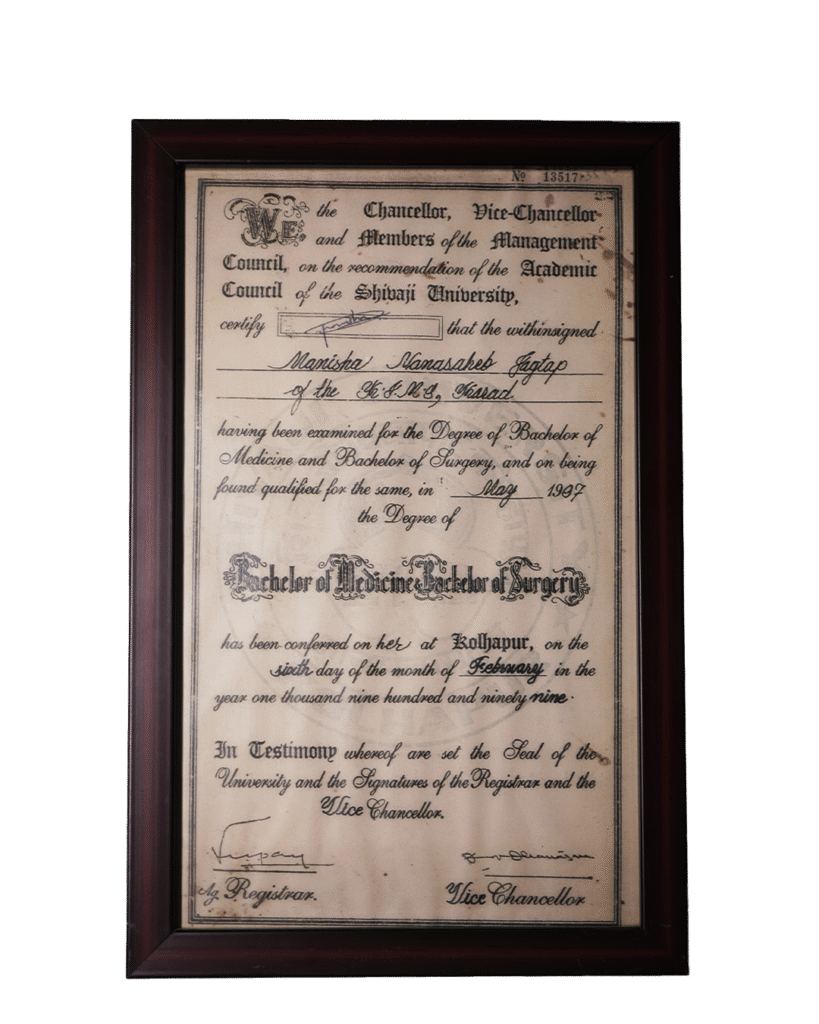 Nº 13517
WE, the Chancellor, Vice-Chancellor
and Members of the Management
Council, on the recommendation of the Academic
Council of the Shivaji University,
certify that the withinsigned
Manisha Nanasaheb Jagtap
of the K.I.M.S, Karad
having been examined for the Degree of Bachelor of
Medicine and Bachelor of Surgery, and on being
found qualified for the same, in May 1997
the Degree of
Bachelor of Medicine & Bachelor of Surgery
has been conferred on her at Kolhapur, on the
sixth day of the month of February in the
year one thousand nine hundred and ninety nine.
In Testimony whereof are set the Seal of the
University and the Signatures of the Registrar and the
Vice Chancellor.
Ag. Registrar.
Vice Chancellor